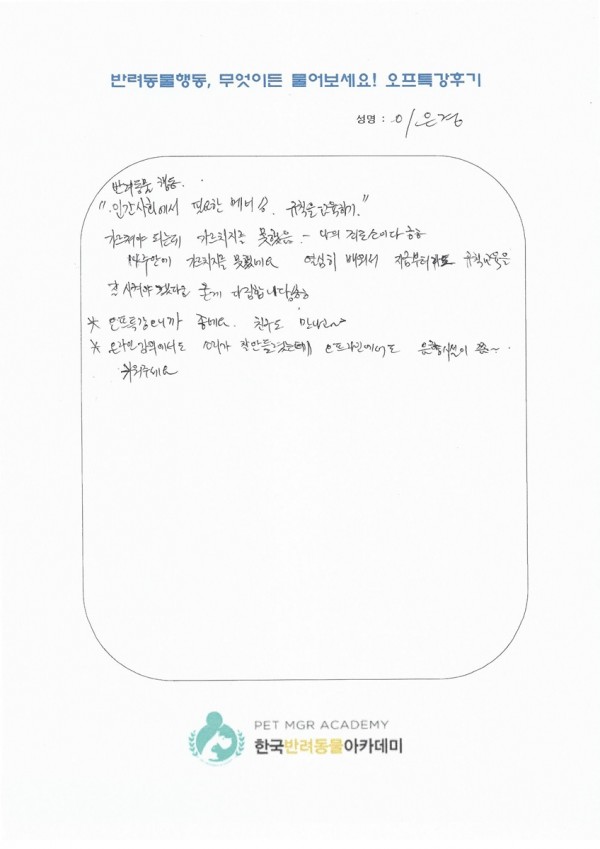 반려동물행동, 무엇이든 물어보세요! 오프특강후기
성명 : 이은경
반려동물 행동.
"인간사회에서 필요한 매너 & 규칙을 교육하기."
가르쳐야 되는데 가르치지를 못했음.
가르치지를 못했네요 열심히 배워서 지금부터 규칙교육을
잘 시켜야
* 오프특강 오니까 좋네요. 친구도 만나고~
* 온라인 강의에서도 소리가 잘 안들렸는데 오프라인에서도 음향시설이
키워주세요
PET MGR ACADEMY
한국반려동물아카데미